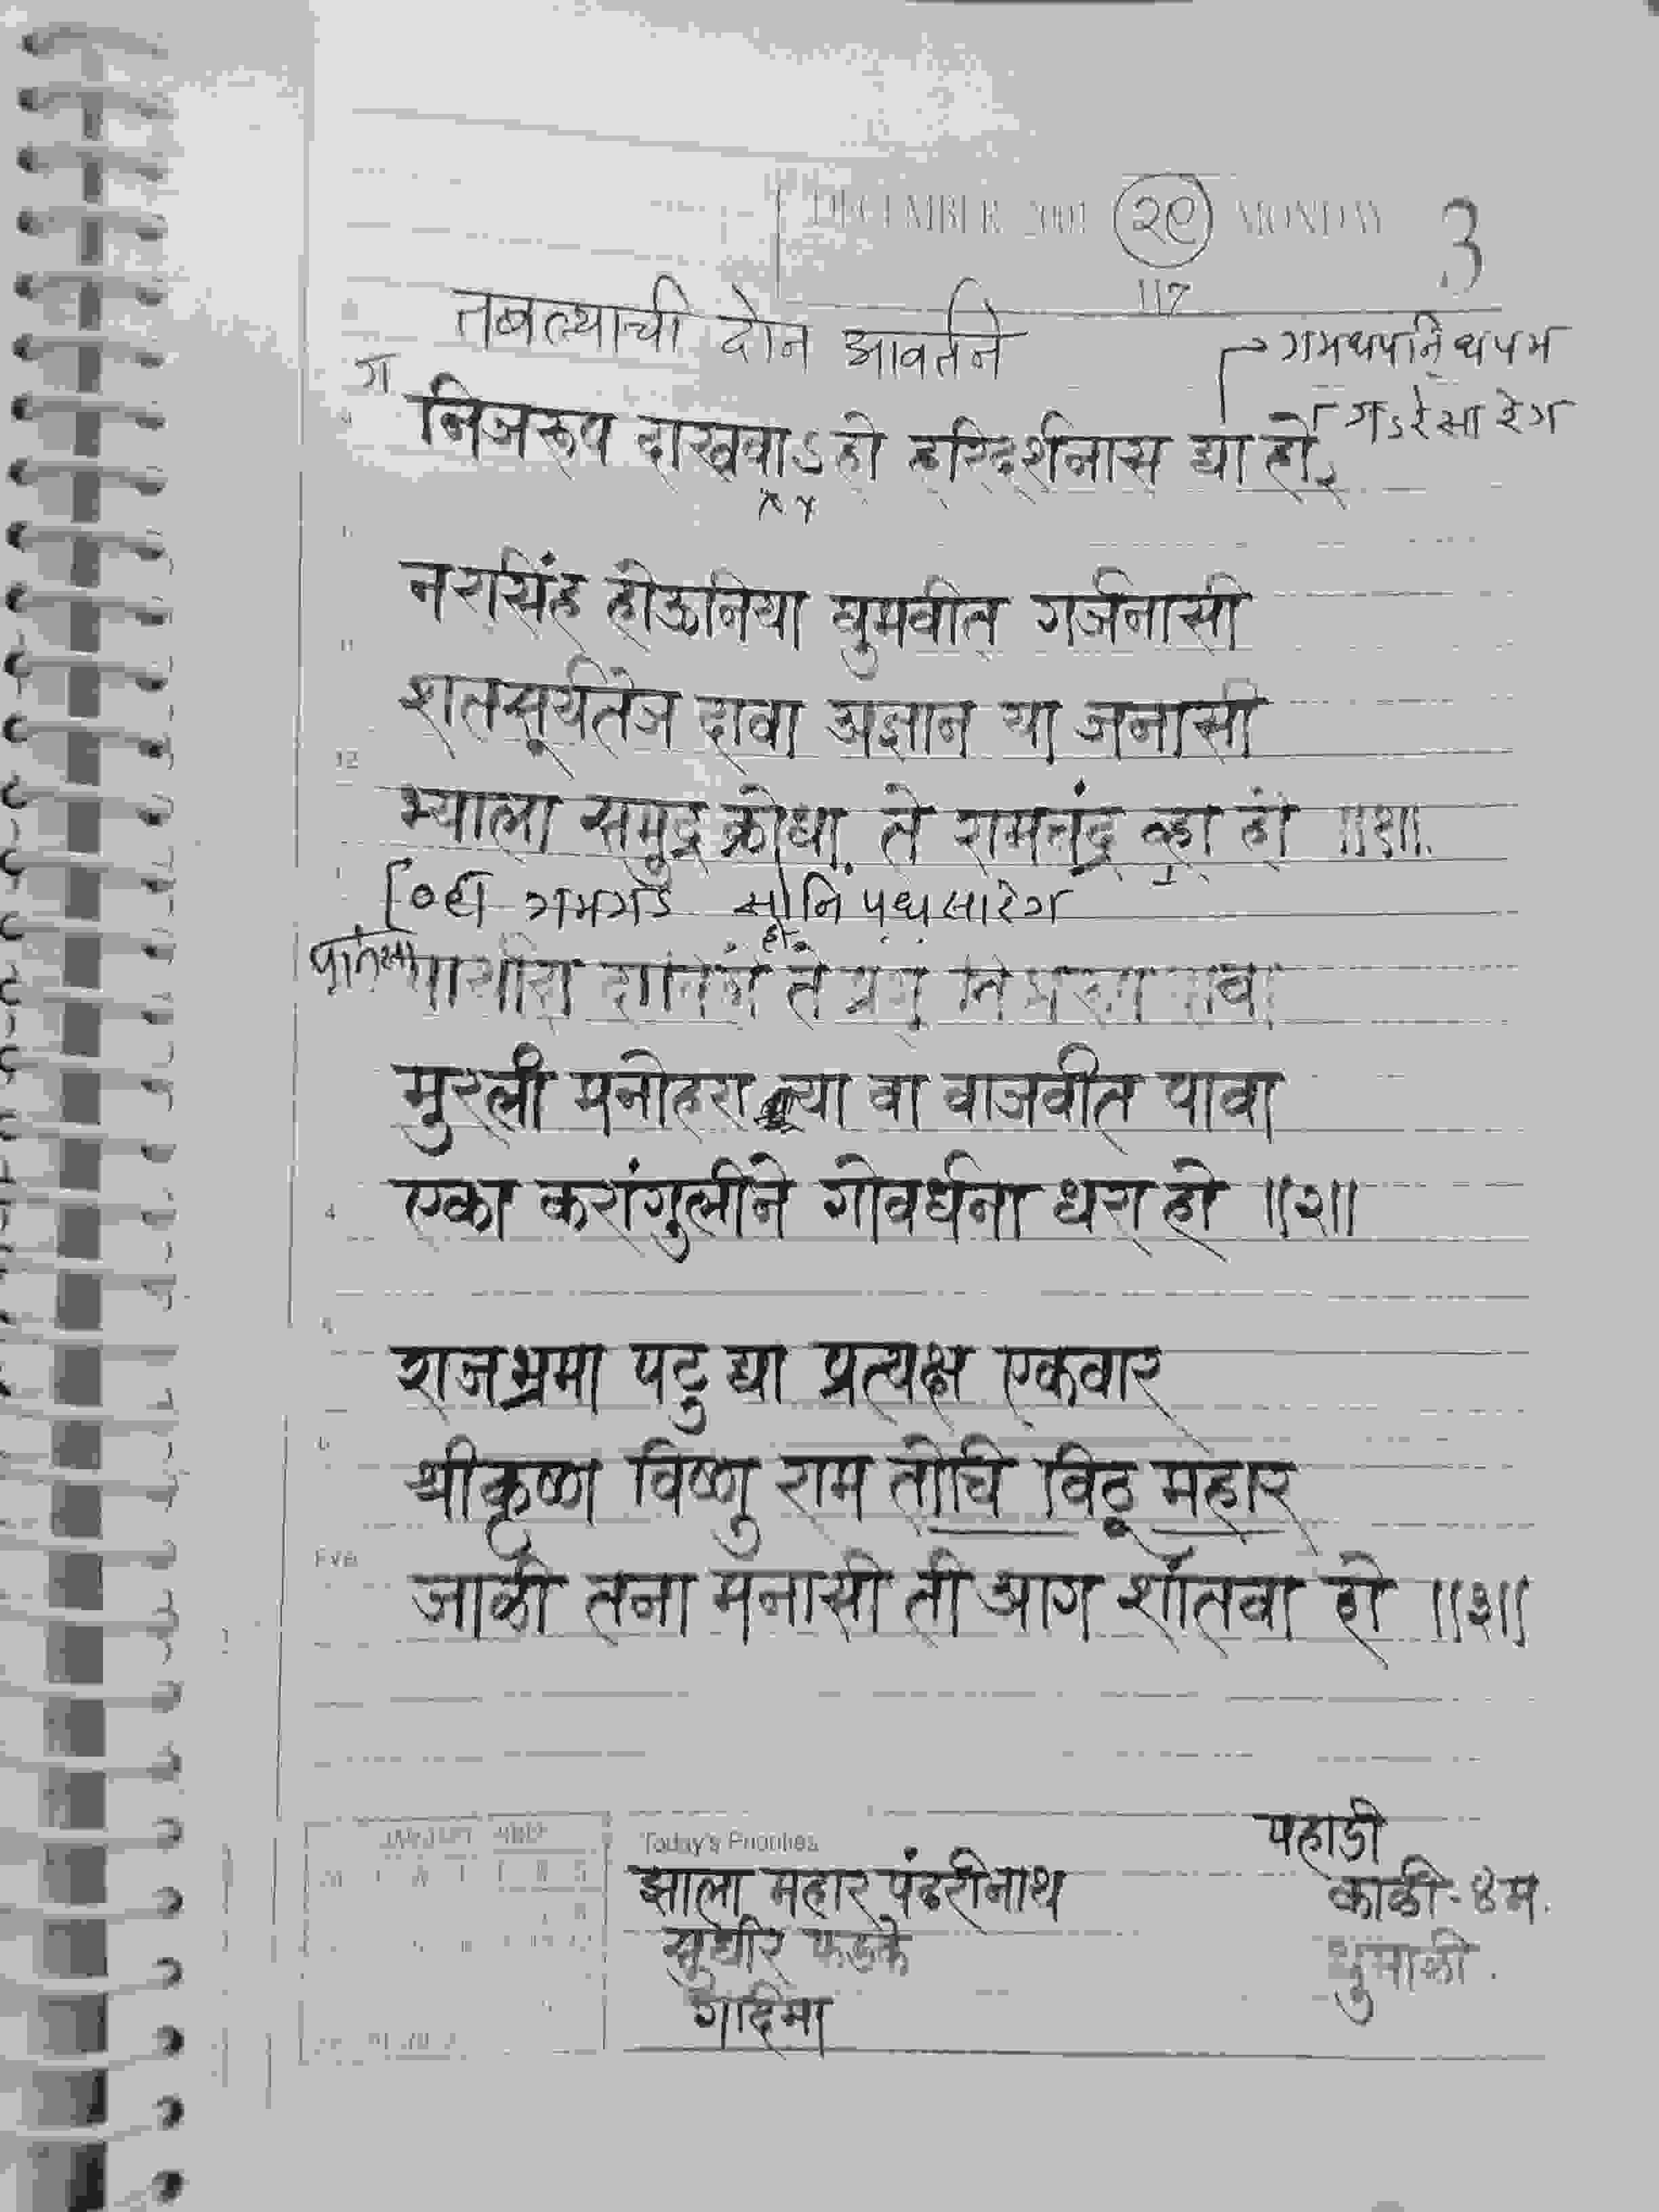 DECEMBER 2001 २९ MONDAY 3
117
तबल्याची दोन आवर्तने
गमधपनिधपम
ग
गऽरेसारेग
निजरूप दाखवाऽहो हरिदर्शनास द्या हो
नरसिंह होऊनिया घुमवीत गर्जनासी
शतसूर्यतेज दावा अज्ञान या जनासी
भ्याला समुद्र क्रोधा ते रामचंद्र व्हा हो ॥१॥
व्हा गमगरे सांनि पधसारेग
हो
ते
मुरली मनोहरा त्या वा वाजवीत पावा
एका करांगुलीने गोवर्धना धरा हो ॥२॥
राजभ्रमा पटु द्या प्रत्यक्ष एकवार
श्रीकृष्ण विष्णु राम तोचि विठू महार
जाळी तना मनासी ती आग शांतवा हो ॥३॥
Today's Priorities
पहाडी
झाला महार पंढरीनाथ
काळी-४म.
सुधीर फडके
धुमाळी.
गदिमा